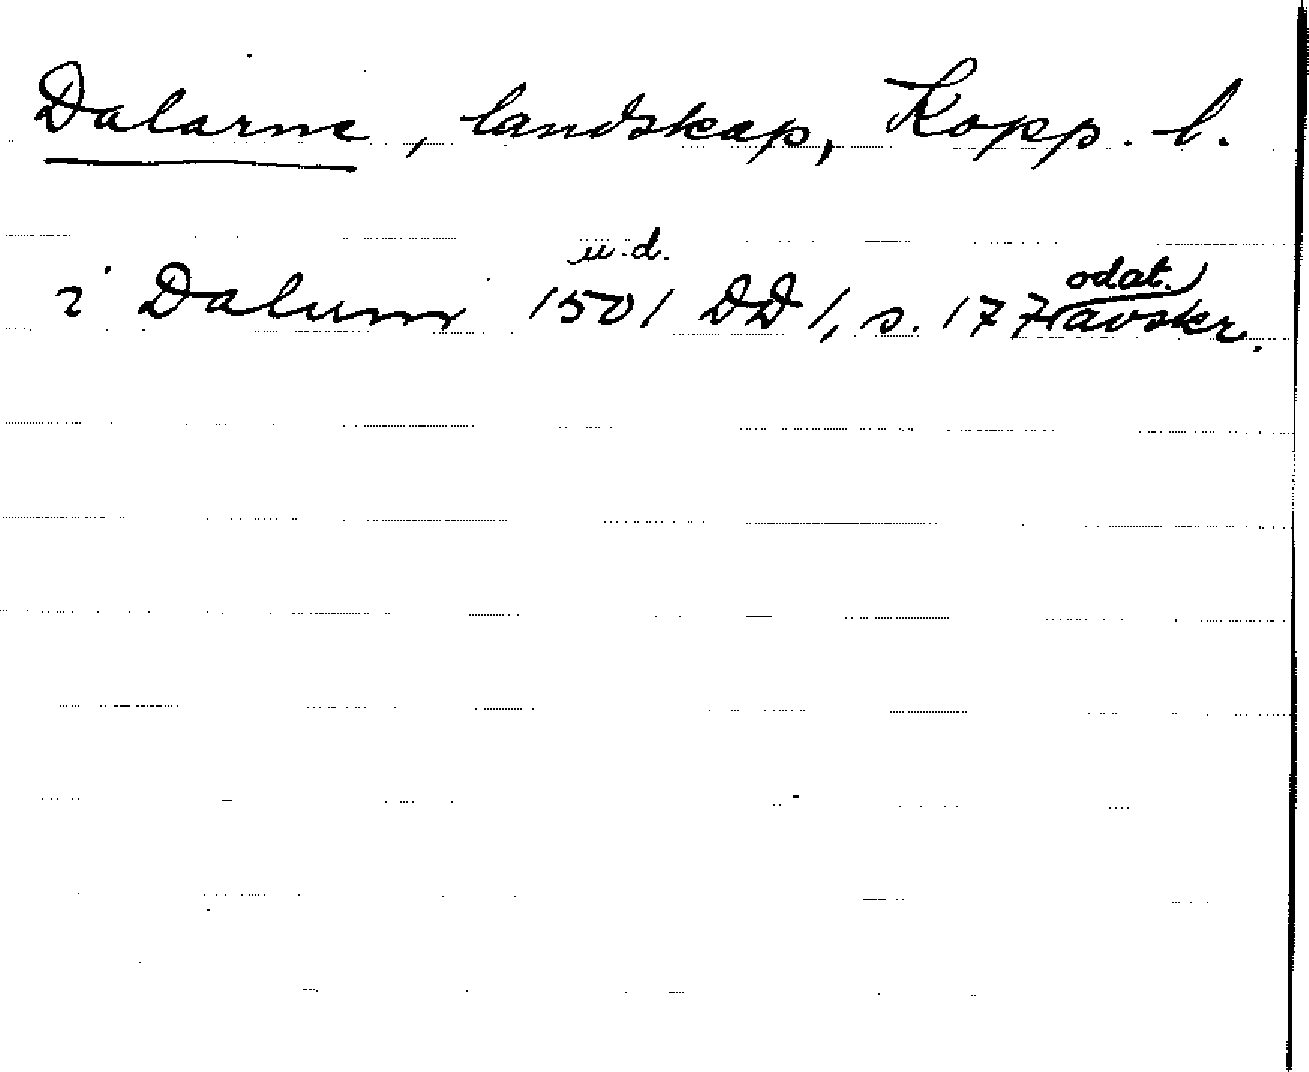 Dalarne, landskap, Kopp. l.
u.d.
i Dalum 1501 DD 1, s. 177 odat. avskr.